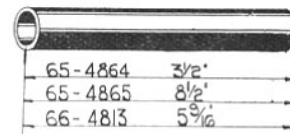 65-4864 3½"
65-4865 8½"
66-4813 5⁹⁄₁₆"